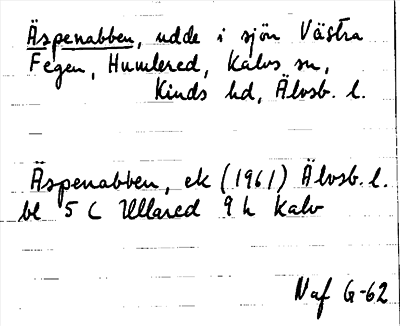 Äspenabben, udde i sjön Västra
Fegen, Humlered, Kalvs sn,
Kinds hd, Älvsb. l.
Äspenabben, ek (1961) Älvsb. l.
bl 5 C Ullared 9 h Kalv
Naf G-62